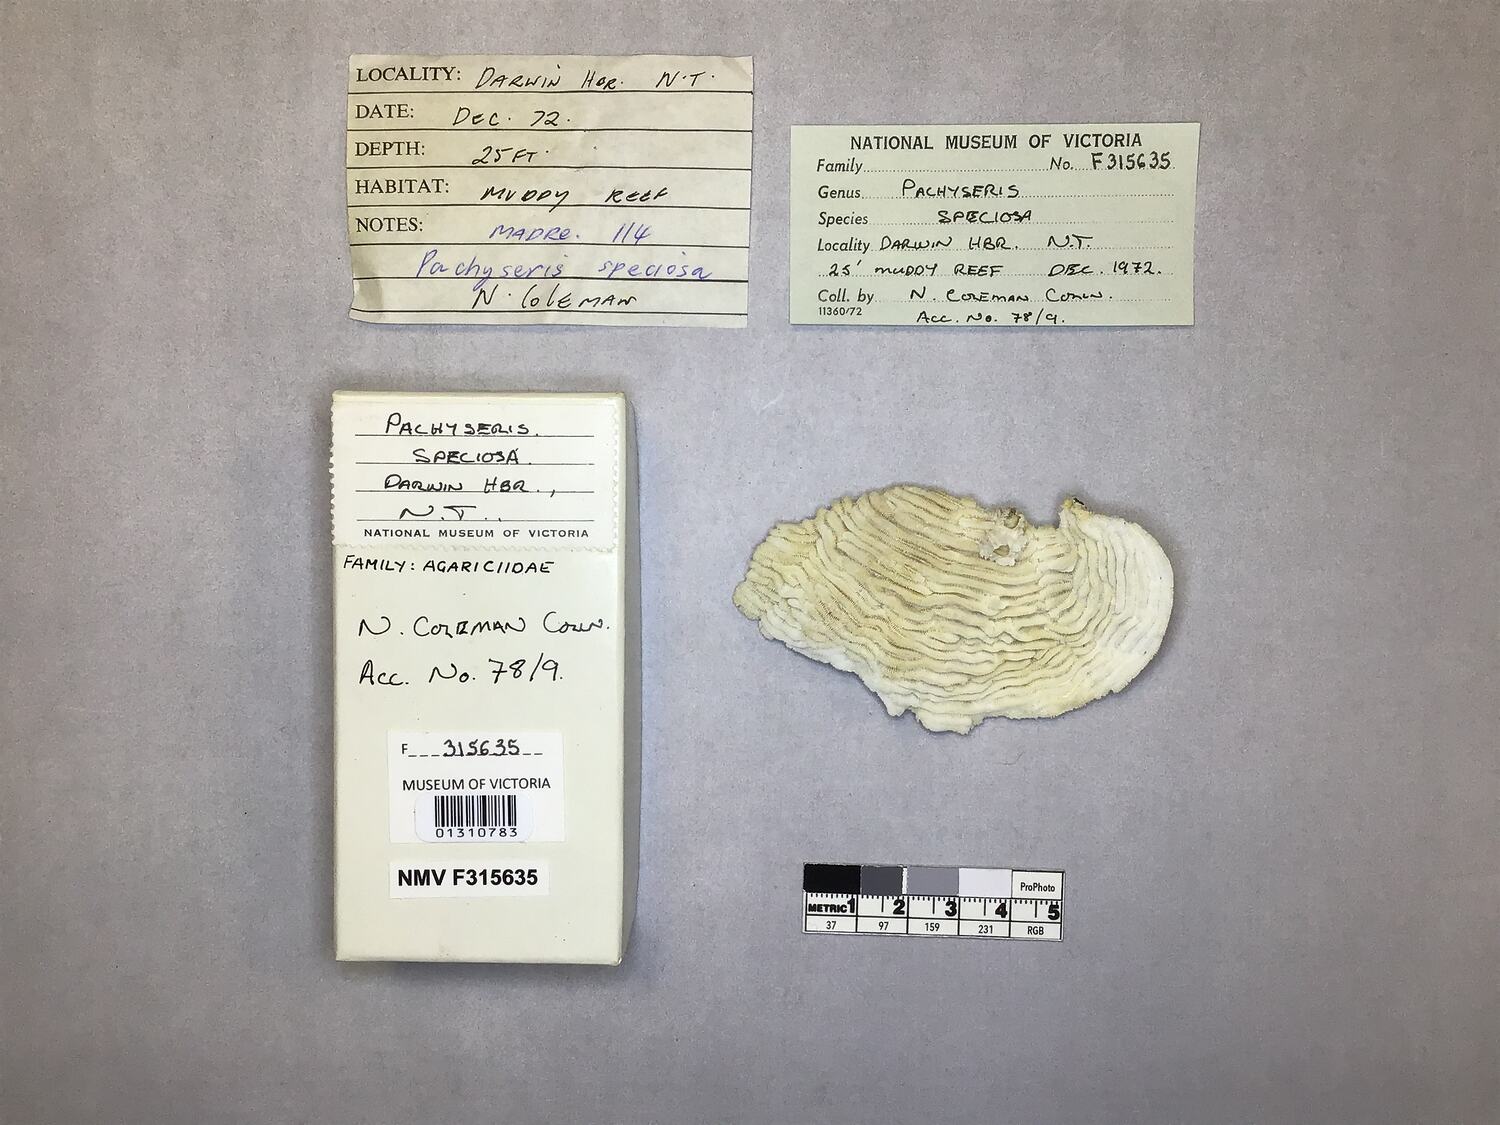 LOCALITY: DARWIN HBR. N.T.
DATE: DEC. 72.
DEPTH: 25 FT.
HABITAT: MUDDY REEF
NOTES: MADRE. 114
Pachyseris speciosa
N. COLEMAN
NATIONAL MUSEUM OF VICTORIA
Family No. F315635
Genus PACHYSERIS
Species SPECIOSA
Locality DARWIN HBR. N.T.
25' MUDDY REEF DEC. 1972.
Coll. by N. COLEMAN COLLN.
11360/72 ACC. NO. 78/9.
PACHYSERIS.
SPECIOSA.
DARWIN HBR.,
N.T..
NATIONAL MUSEUM OF VICTORIA
FAMILY: AGARICIIDAE
N. COLEMAN COLLN.
ACC. NO. 78/9.
F___315635__
MUSEUM OF VICTORIA
01310783
NMV F315635
ProPhoto
METRIC 1 2 3 4 5
37 97 159 231 RGB